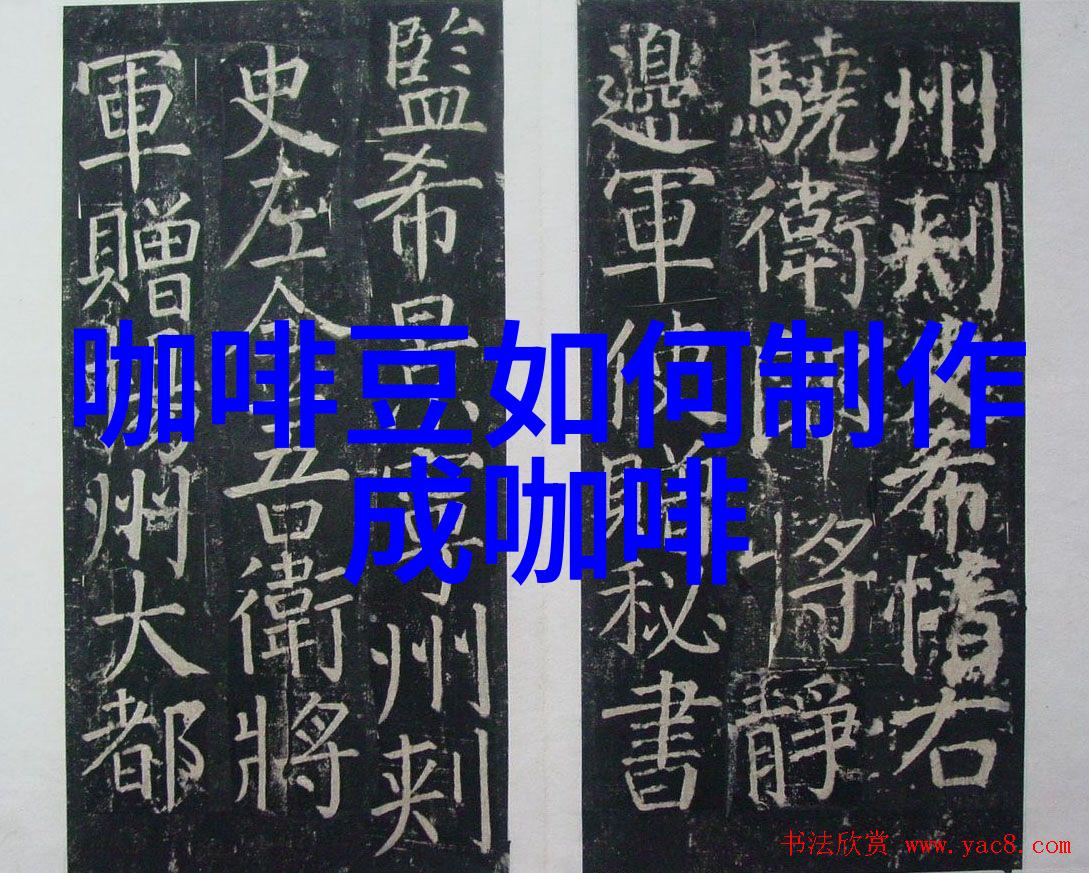 咖啡豆如何制作
成咖啡
州刺史希右
驍衛郎將靜
邊軍使贈秘書
監希景寧州刺
史左金吾衛將
軍贈州大都
书法欣赏 www.yac8.com